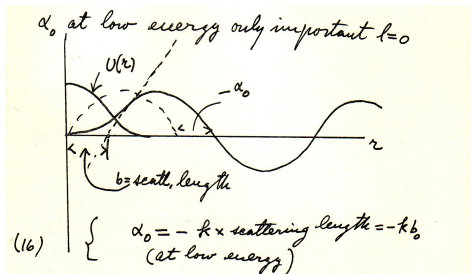 α₀ at low energy only important l=0
U(r)
-α₀
r
b=scatt. length
(16) { α₀ = - k × scattering length = -kb₀
(at low energy)